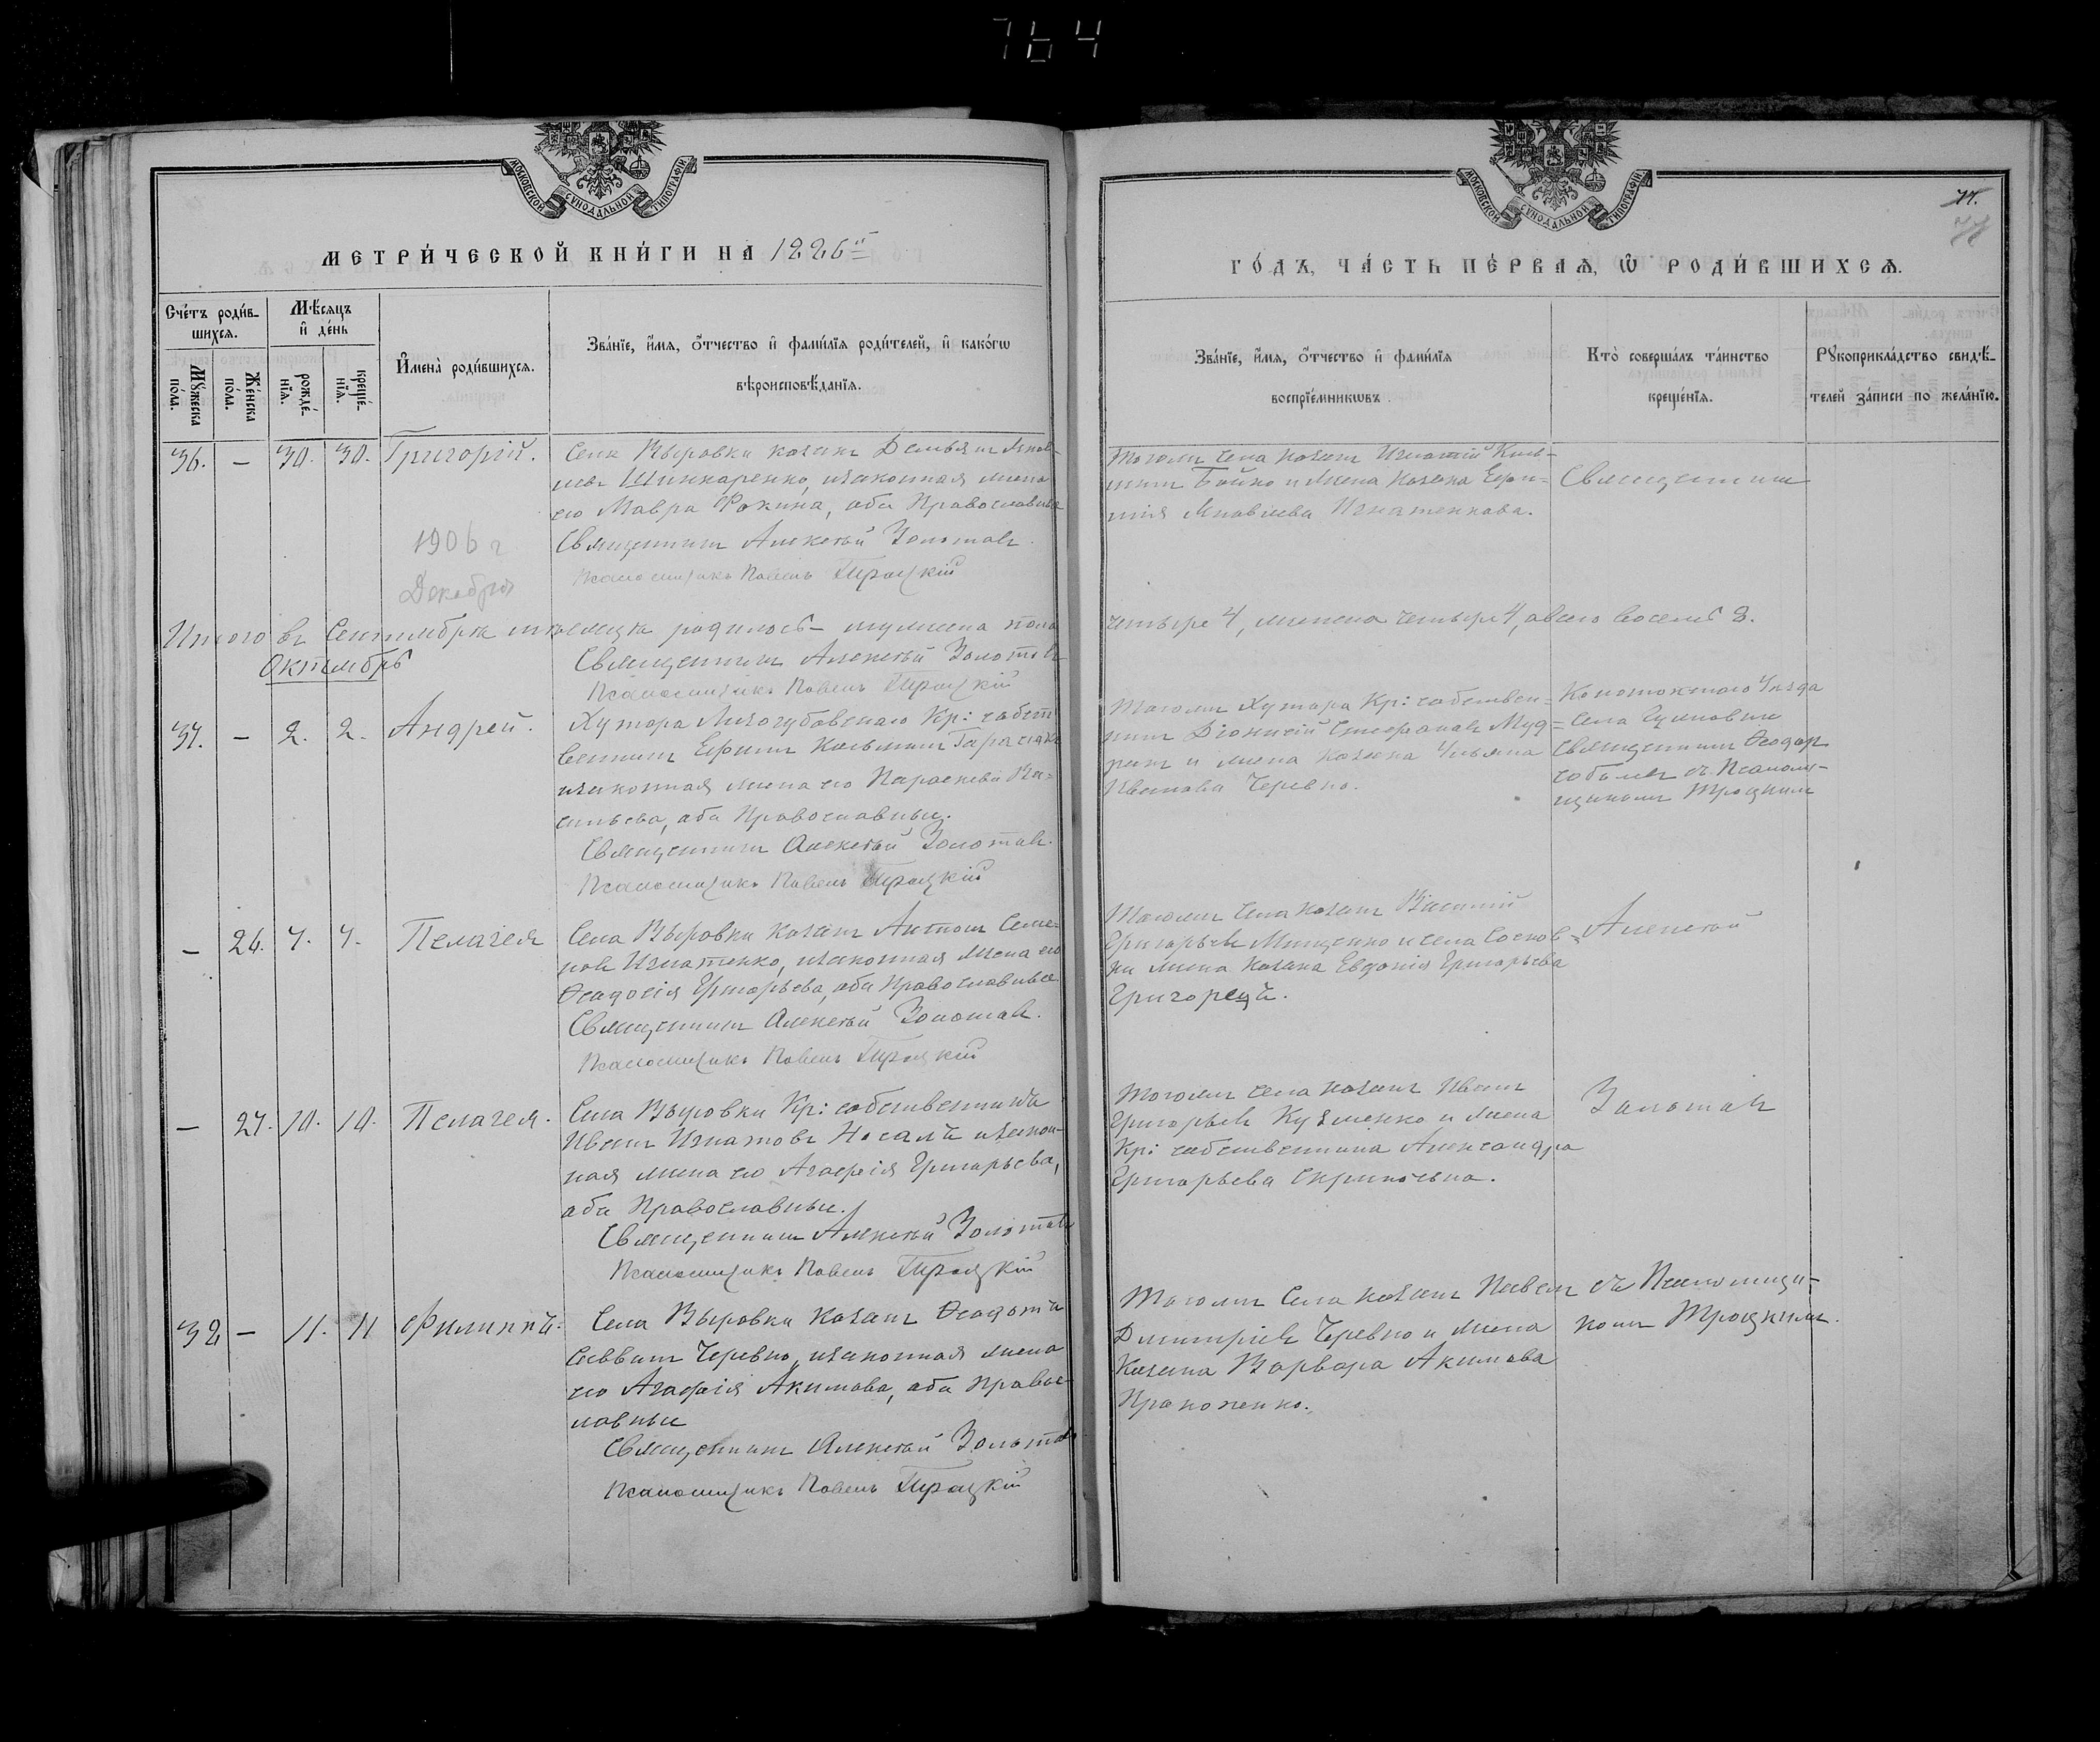 764
МОСКОВСКОЙ СУНОДАЛЬНОЙ ТИПОГРАФІИ
МЕТРИ́ЧЕСКОЙ КНИ́ГИ НА 1886й
Сче́тъ роди́в-
шихсѧ.
Мѣ́сѧцъ
и҆ де́нь
Мꙋ́жеска по́ла.
Же́нска по́ла.
рожде́-нїѧ.
креще́-нїѧ.
И҆мена̀ роди́вшихсѧ.
Зва́нїе, и҆́мѧ, ѻ҆́тчество и҆ фамилїѧ роди́телей, и҆ како́гѡ
вѣроисповѣ́данїѧ.
36. — 30. 30. Григорій.
Села Выровки козакъ Демьянъ
Шинкаренко, изаконная жена
его Мавра Фокина, оба Православные
Священникъ Алексѣй Золотовъ.
Псаломщикъ Павелъ Троцкій
1906 г
Декабря
Итого въ Сентябрѣ мѣсяцѣ родилось мужеска пола
Октябрь
Священникъ Алексѣй Золотовъ
Псаломщикъ Павелъ Троцкій
37. — 2. 2. Андрей.
Хутора Лизогубовскаго Кр: собст
венникъ Ефимъ Козьминъ
изаконная жена его Параскева Ва-
сильева, оба Православные.
Священникъ Алексѣй Золотовъ.
Псаломщикъ Павелъ Троцкій
— 26. 4. 4. Пелагея
Села Выровки козакъ Антонъ Семе-
новъ Игнатенко, изаконная жена его
Ѳеодосія Григорьева, оба Православные
Священникъ Алексѣй Золотовъ.
Псаломщикъ Павелъ Троцкій
— 27. 10. 10. Пелагея.
Села Выровки Кр: собственникъ
Иванъ Игнатовъ Носаль изакон-
ная жена его Агафія Григорьева,
оба Православные.
Священникъ Алексѣй Золотовъ
Псаломщикъ Павелъ Троцкій
38 — 11. 11 Филиппъ.
Села Выровки козакъ Ѳеодотъ
Саввинъ Черевко, изаконная жена
его Агафія Акимова, оба Правос-
лавные
Священникъ Алексѣй Золотовъ
Псаломщикъ Павелъ Троцкій
МОСКОВСКОЙ СУНОДАЛЬНОЙ ТИПОГРАФІИ
77.
77
ГО́ДЪ, ЧА́СТЬ ПЕ́РВАѦ, Ѡ҆ РОДИ́ВШИХСѦ.
Зва́нїе, и҆́мѧ, ѻ҆́тчество и҆ фами́лїѧ
воспрїе́мникѡвъ.
Кто̀ соверша́лъ та́инство
креще́нїѧ.
Рꙋкоприкла́дство свидѣ́-
телей за́писи по жела́нїю.
Тогожъ села козакъ Игнатій Козь-
минъ Бойко и жена козака Ефи-
мія Яковлева Игнатенкова.
Священникъ
четыре 4, женска четыре 4, а всего восемь 8.
Тогожъ Хутора Кр: собствен-
никъ Діонисій Стефановъ Муд-
рикъ и жена козака Ульяна
Иванова Черевко.
Конотопскаго Уѣзда
Села
Священникъ Ѳеодоръ
съ Псалом-
щикомъ Троцкимъ
Тогожъ села козакъ Василій
Григорьевъ Мищенко и села Соснов-
ки жена козака Евдокія Григорьева
Григорецъ.
Алексѣй
Тогожъ села козакъ Иванъ
Григорьевъ Кузменко и жена
Кр: собственника Александра
Григорьева
Золотовъ
Тогожъ Села козакъ Павелъ
Димитріевъ Черевко и жена
Козака Варвара Акимова
Прокопенко.
съ Псаломщи-
комъ Троцкимъ.